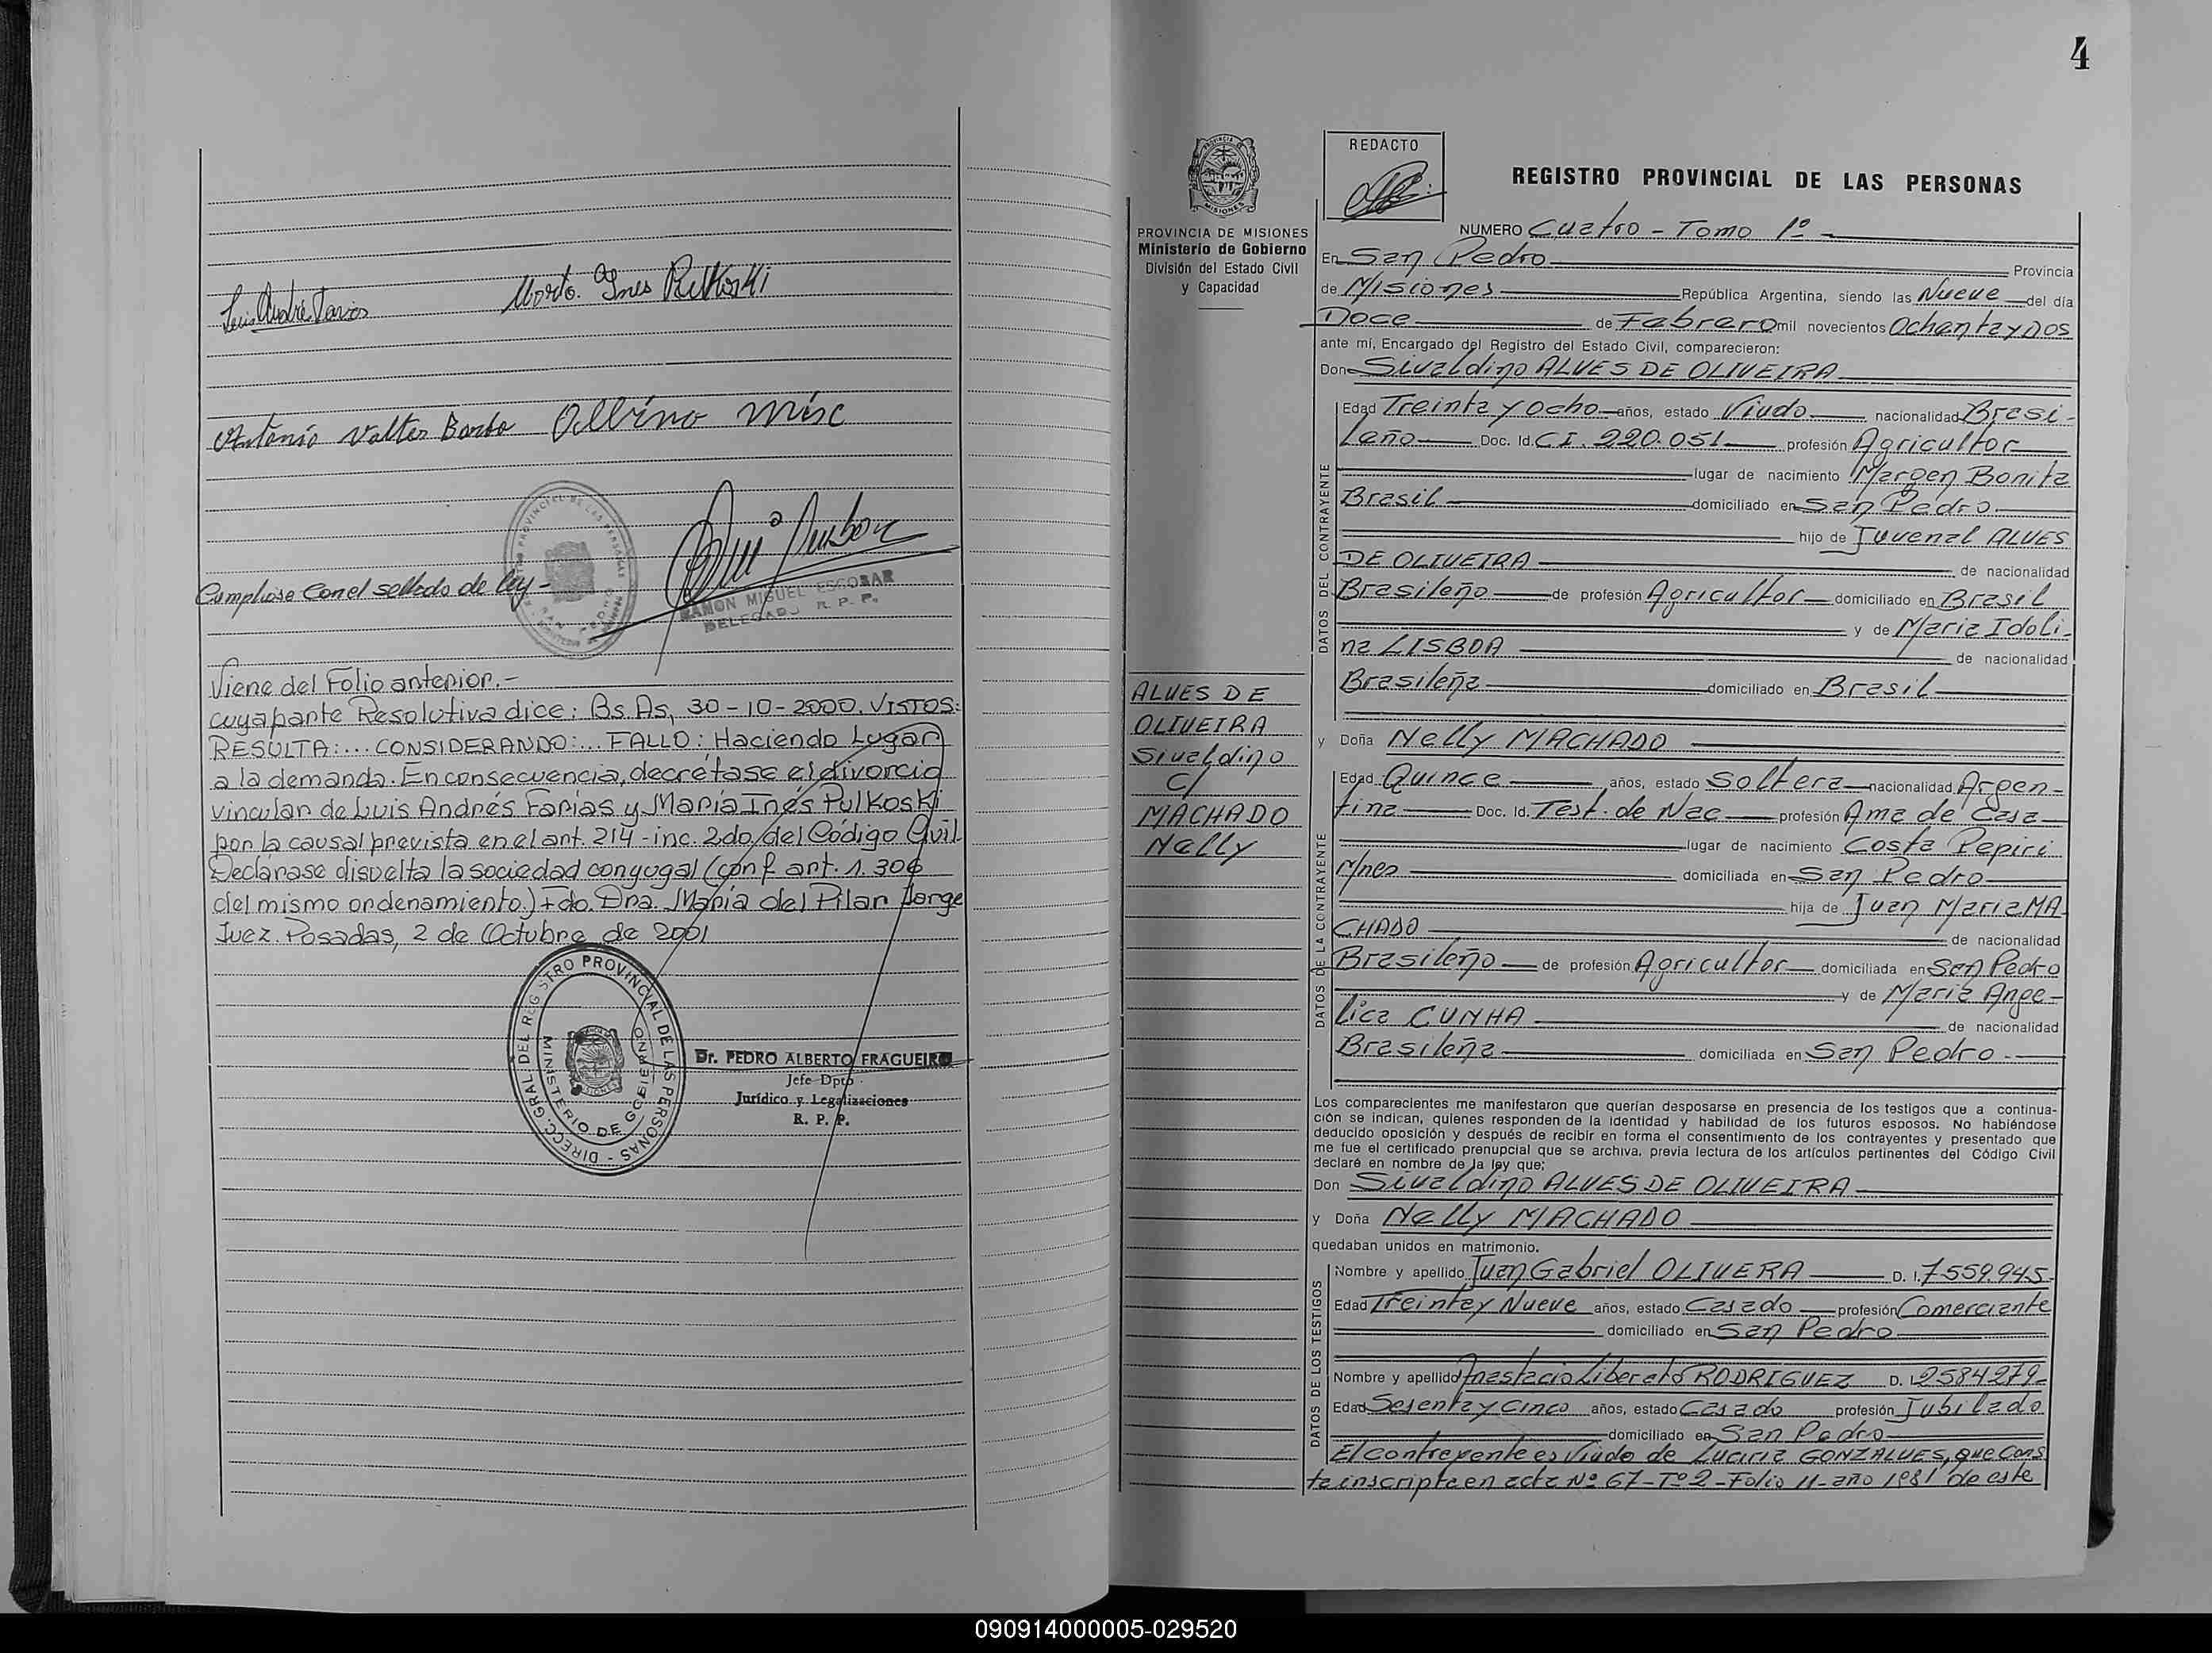 Luis Andrés Farias
María Ines Pulkoski
Antonio Valter Barbo Albino Misc
Cumplióse Con el sellado de ley -
RAMON MIGUEL ESCOBAR
DELEGADO R. P. P.
Viene del Folio anterior.-
cuya parte Resolutiva dice: Bs. As, 30-10-2000. VISTOS:
RESULTA:... CONSIDERANDO:... FALLO: Haciendo Lugar
a la demanda. En consecuencia, decrétase el divorcio
vincular de Luis Andrés Farias y María Inés Pulkoski
por la causal prevista en el art. 214 - inc. 2do. del Código Civil.
Declárase disuelta la sociedad conyugal (conf. art. 1.306
del mismo ordenamiento.) Fdo. Dra. María del Pilar Jorge
Juez. Posadas, 2 de Octubre de 2001
DIRECC. GRAL DEL REGISTRO PROVINCIAL DE LAS PERSONAS -
MINISTERIO DE GOBIERNO
Dr. PEDRO ALBERTO FRAGUEIRO
Jefe Dpto.
Jurídico y Legalizaciones
R. P. P.
4
PROVINCIA DE MISIONES
Ministerio de Gobierno
División del Estado Civil
y Capacidad
ALVES DE
OLIVEIRA
Sivaldino
C/
MACHADO
Nelly
REDACTO
REGISTRO PROVINCIAL DE LAS PERSONAS
NUMERO Cuatro - Tomo 1º -
En San Pedro Provincia
de Misiones República Argentina, siendo las Nueve del día
Doce de Febrero mil novecientos Ochenta y Dos
ante mí, Encargado del Registro del Estado Civil, comparecieron:
Don Sivaldino ALVES DE OLIVEIRA
DATOS DEL CONTRAYENTE
Edad Treinta y Ocho años, estado Viudo nacionalidad Brasi-
leño Doc. Id. C.I. 220.051 profesión Agricultor
lugar de nacimiento Margen Bonita
Brasil domiciliado en San Pedro
hijo de Juvenal ALVES
DE OLIVEIRA de nacionalidad
Brasileño de profesión Agricultor domiciliado en Brasil
y de Maria Idoli-
na LISBOA de nacionalidad
Brasileña domiciliado en Brasil
y Doña Nelly MACHADO
DATOS DE LA CONTRAYENTE
Edad Quince años, estado Soltera nacionalidad Argen-
tina Doc. Id. Test. de Nac profesión Ama de Casa
lugar de nacimiento Costa Pepiri
Mnes domiciliada en San Pedro
hija de Juan Maria MA
CHADO de nacionalidad
Brasileño de profesión Agricultor domiciliada en San Pedro
y de Maria Ange-
lica CUNHA de nacionalidad
Brasileña domiciliada en San Pedro -
Los comparecientes me manifestaron que querían desposarse en presencia de los testigos que a continua-
ción se indican, quienes responden de la identidad y habilidad de los futuros esposos. No habiéndose
deducido oposición y después de recibir en forma el consentimiento de los contrayentes y presentado que
me fue el certificado prenupcial que se archiva, previa lectura de los artículos pertinentes del Código Civil
declaré en nombre de la ley que:
Don Sivaldino ALVES DE OLIVEIRA
y Doña Nelly MACHADO
quedaban unidos en matrimonio.
DATOS DE LOS TESTIGOS
Nombre y apellido Juan Gabriel OLIVERA D. I. 7.559.945
Edad Treinta y Nueve años, estado Casado profesión Comerciante
domiciliado en San Pedro
Nombre y apellido Anastacio Liberato RODRIGUEZ D. I. 2584279
Edad Sesenta y Cinco años, estado Casado profesión Jubilado
domiciliado en San Pedro
El contrayente es Viudo de Luciria GONZALVES, que Cons
ta inscripta en acta Nº 67 - Tº 2 - Folio 11 - año 1981 de este
090914000005-029520